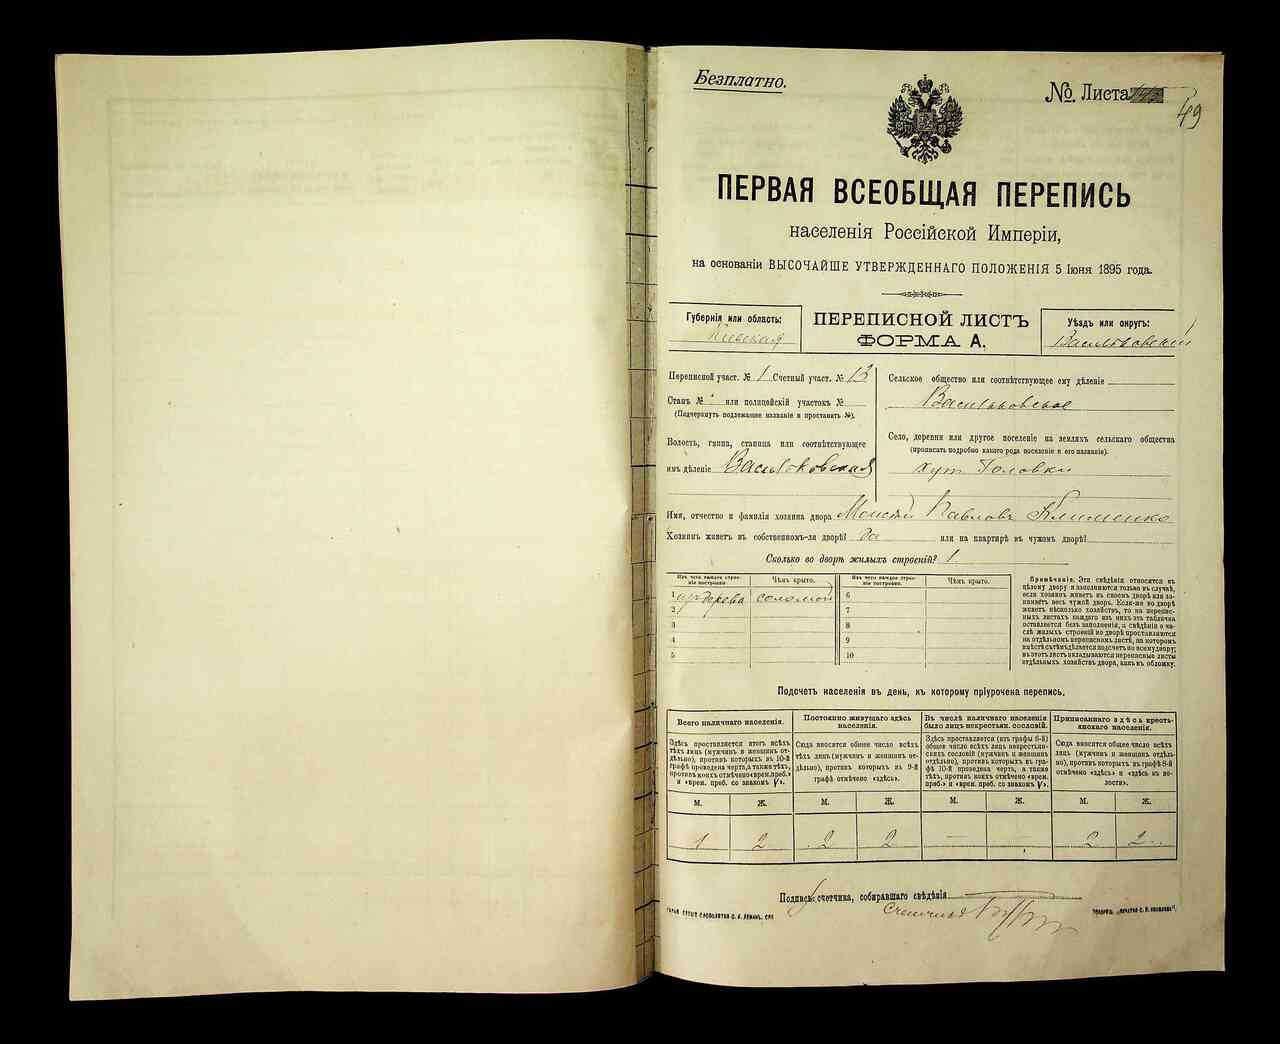 Безплатно.
№. Листа
49
ПЕРВАЯ ВСЕОБЩАЯ ПЕРЕПИСЬ
населенія Россійской Имперіи,
на основаніи ВЫСОЧАЙШЕ УТВЕРЖДЕННАГО ПОЛОЖЕНІЯ 5 Іюня 1895 года.
Губернія или область:
Кіевская
ПЕРЕПИСНОЙ ЛИСТЪ
ФОРМА А.
Уѣздъ или округъ:
Васильковскій
Переписной участ. № 1 Счетный участ. № 13
Станъ № или полицейскій участокъ №
(Подчеркнуть подлежащее названіе и проставить №).
Волость, гмина, станица или соотвѣтствующее
имъ дѣленіе Васильковская
Сельское общество или соотвѣтствующее ему дѣленіе
Васильковское
Село, деревня или другое поселеніе на земляхъ сельскаго общества
(прописать подробно какого рода поселеніе и его названіе).
хут Головки
Имя, отчество и фамилія хозяина двора Моисей Павловъ Клименко
Хозяинъ живетъ въ собственномъ-ли дворѣ? да или на квартирѣ въ чужомъ дворѣ?
Сколько во дворѣ жилыхъ строеній? 1
Изъ чего каждое строеніе построено. Чѣмъ крыто. Изъ чего каждое строеніе построено. Чѣмъ крыто.
1 изъ дерева соломой 6
2 7
3 8
4 9
5 10
Примѣчаніе. Эти свѣдѣнія относятся къ
цѣлому двору и заполняются только въ случаѣ,
если хозяинъ живетъ въ своемъ дворѣ или занимаетъ
весь чужой дворъ. Если-же во дворѣ
живетъ нѣсколько хозяйствъ, то на переписныхъ
листахъ каждаго изъ нихъ эта табличка
оставляется безъ заполненія, а свѣдѣнія о числѣ
жилыхъ строеній во дворѣ проставляются
на отдѣльномъ переписномъ листѣ, на которомъ
вмѣстѣ съ тѣмъ дѣлается подсчетъ по всему двору;
въ этотъ листъ вкладываются переписные листы
отдѣльныхъ хозяйствъ двора, какъ въ обложку.
Подсчетъ населенія въ день, къ которому пріурочена перепись.
Всего наличнаго населенія.
Здѣсь проставляется итогъ всѣхъ
тѣхъ лицъ (мужчинъ и женщинъ отдѣльно),
противъ которыхъ въ 10-й
графѣ проведена черта, а также тѣхъ,
противъ коихъ отмѣчено «врем. преб.»
и «врем. преб. со знакомъ V».
Постоянно живущаго здѣсь населенія.
Сюда вносится общее число всѣхъ
тѣхъ лицъ (мужчинъ и женщинъ отдѣльно),
противъ которыхъ въ 9-й
графѣ отмѣчено «здѣсь».
Въ числѣ наличнаго населенія
было лицъ некрестьян. сословій.
Здѣсь проставляется (изъ графы 6-й)
общее число всѣхъ лицъ некрестьянскихъ
сословій (мужчинъ и женщинъ
отдѣльно), противъ которыхъ въ графѣ
10-й проведена черта, а также
тѣхъ, противъ коихъ отмѣчено «врем.
преб.» и «врем. преб. со знакомъ V».
Приписаннаго здѣсь крестьянскаго населенія.
Сюда вносится общее число всѣхъ
лицъ (мужчинъ и женщинъ отдѣльно),
противъ коихъ въ графѣ 8-й
отмѣчено «здѣсь» и «здѣсь въ волости».
М. Ж. М. Ж. М. Ж. М. Ж.
1 2 2 2 — — 2 2
Подпись счетчика, собиравшаго свѣдѣнія